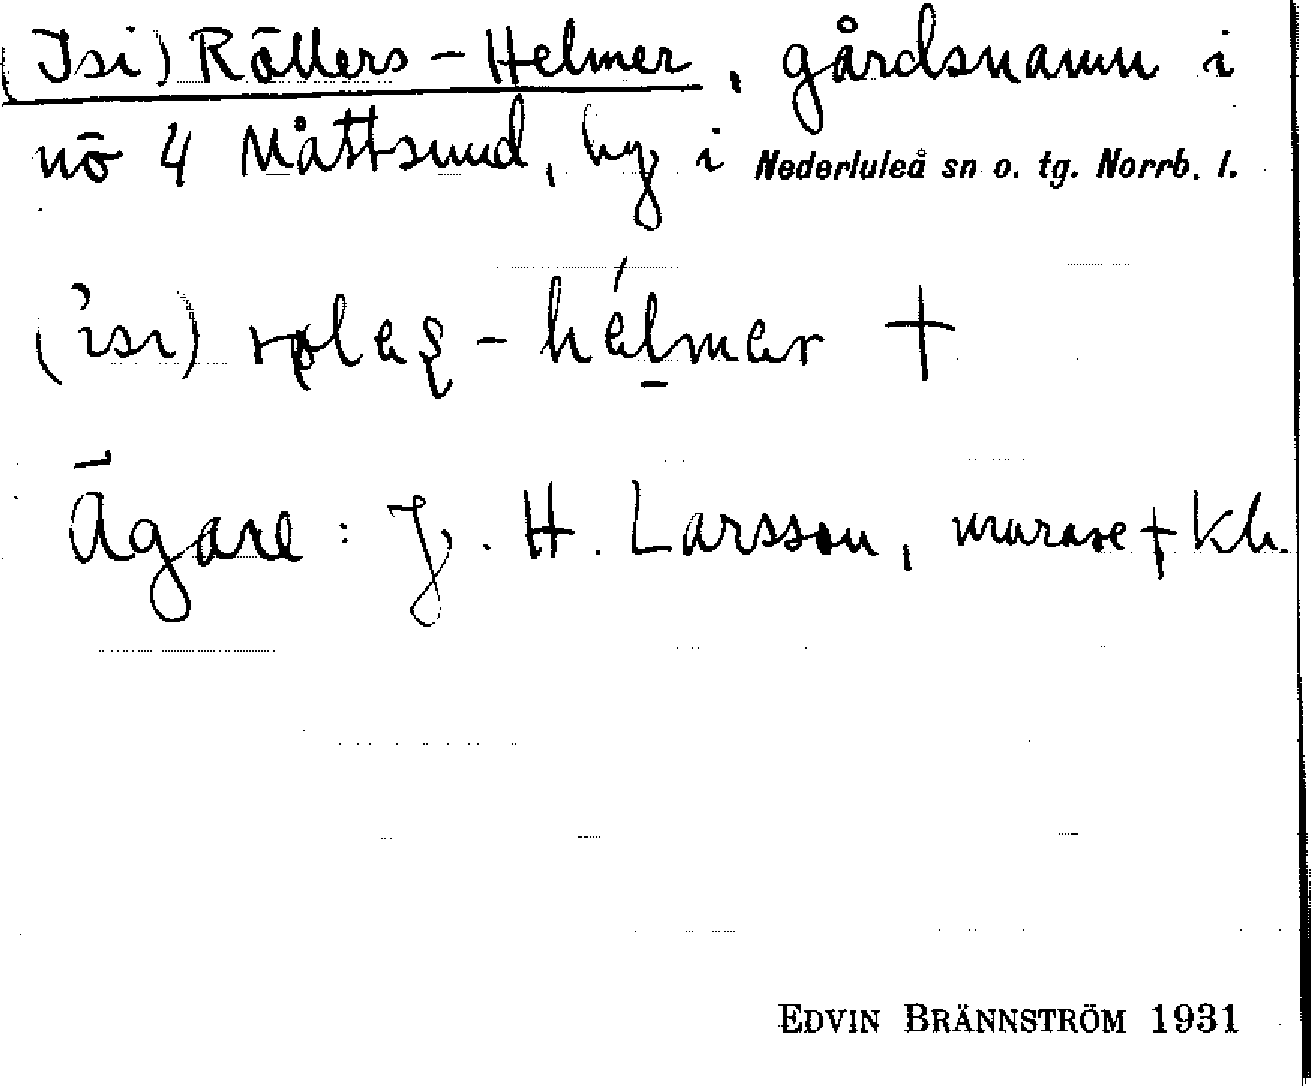 (Isi) Röllers-Helmer, gårdsnamn i
nō 4 Måttsund, by i Nederluleå sn o. tg. Norrb. l.
('isi) -hélmar +
Ägare: J. H. Larsson, murare + Kh.
EDVIN BRÄNNSTRÖM 1931